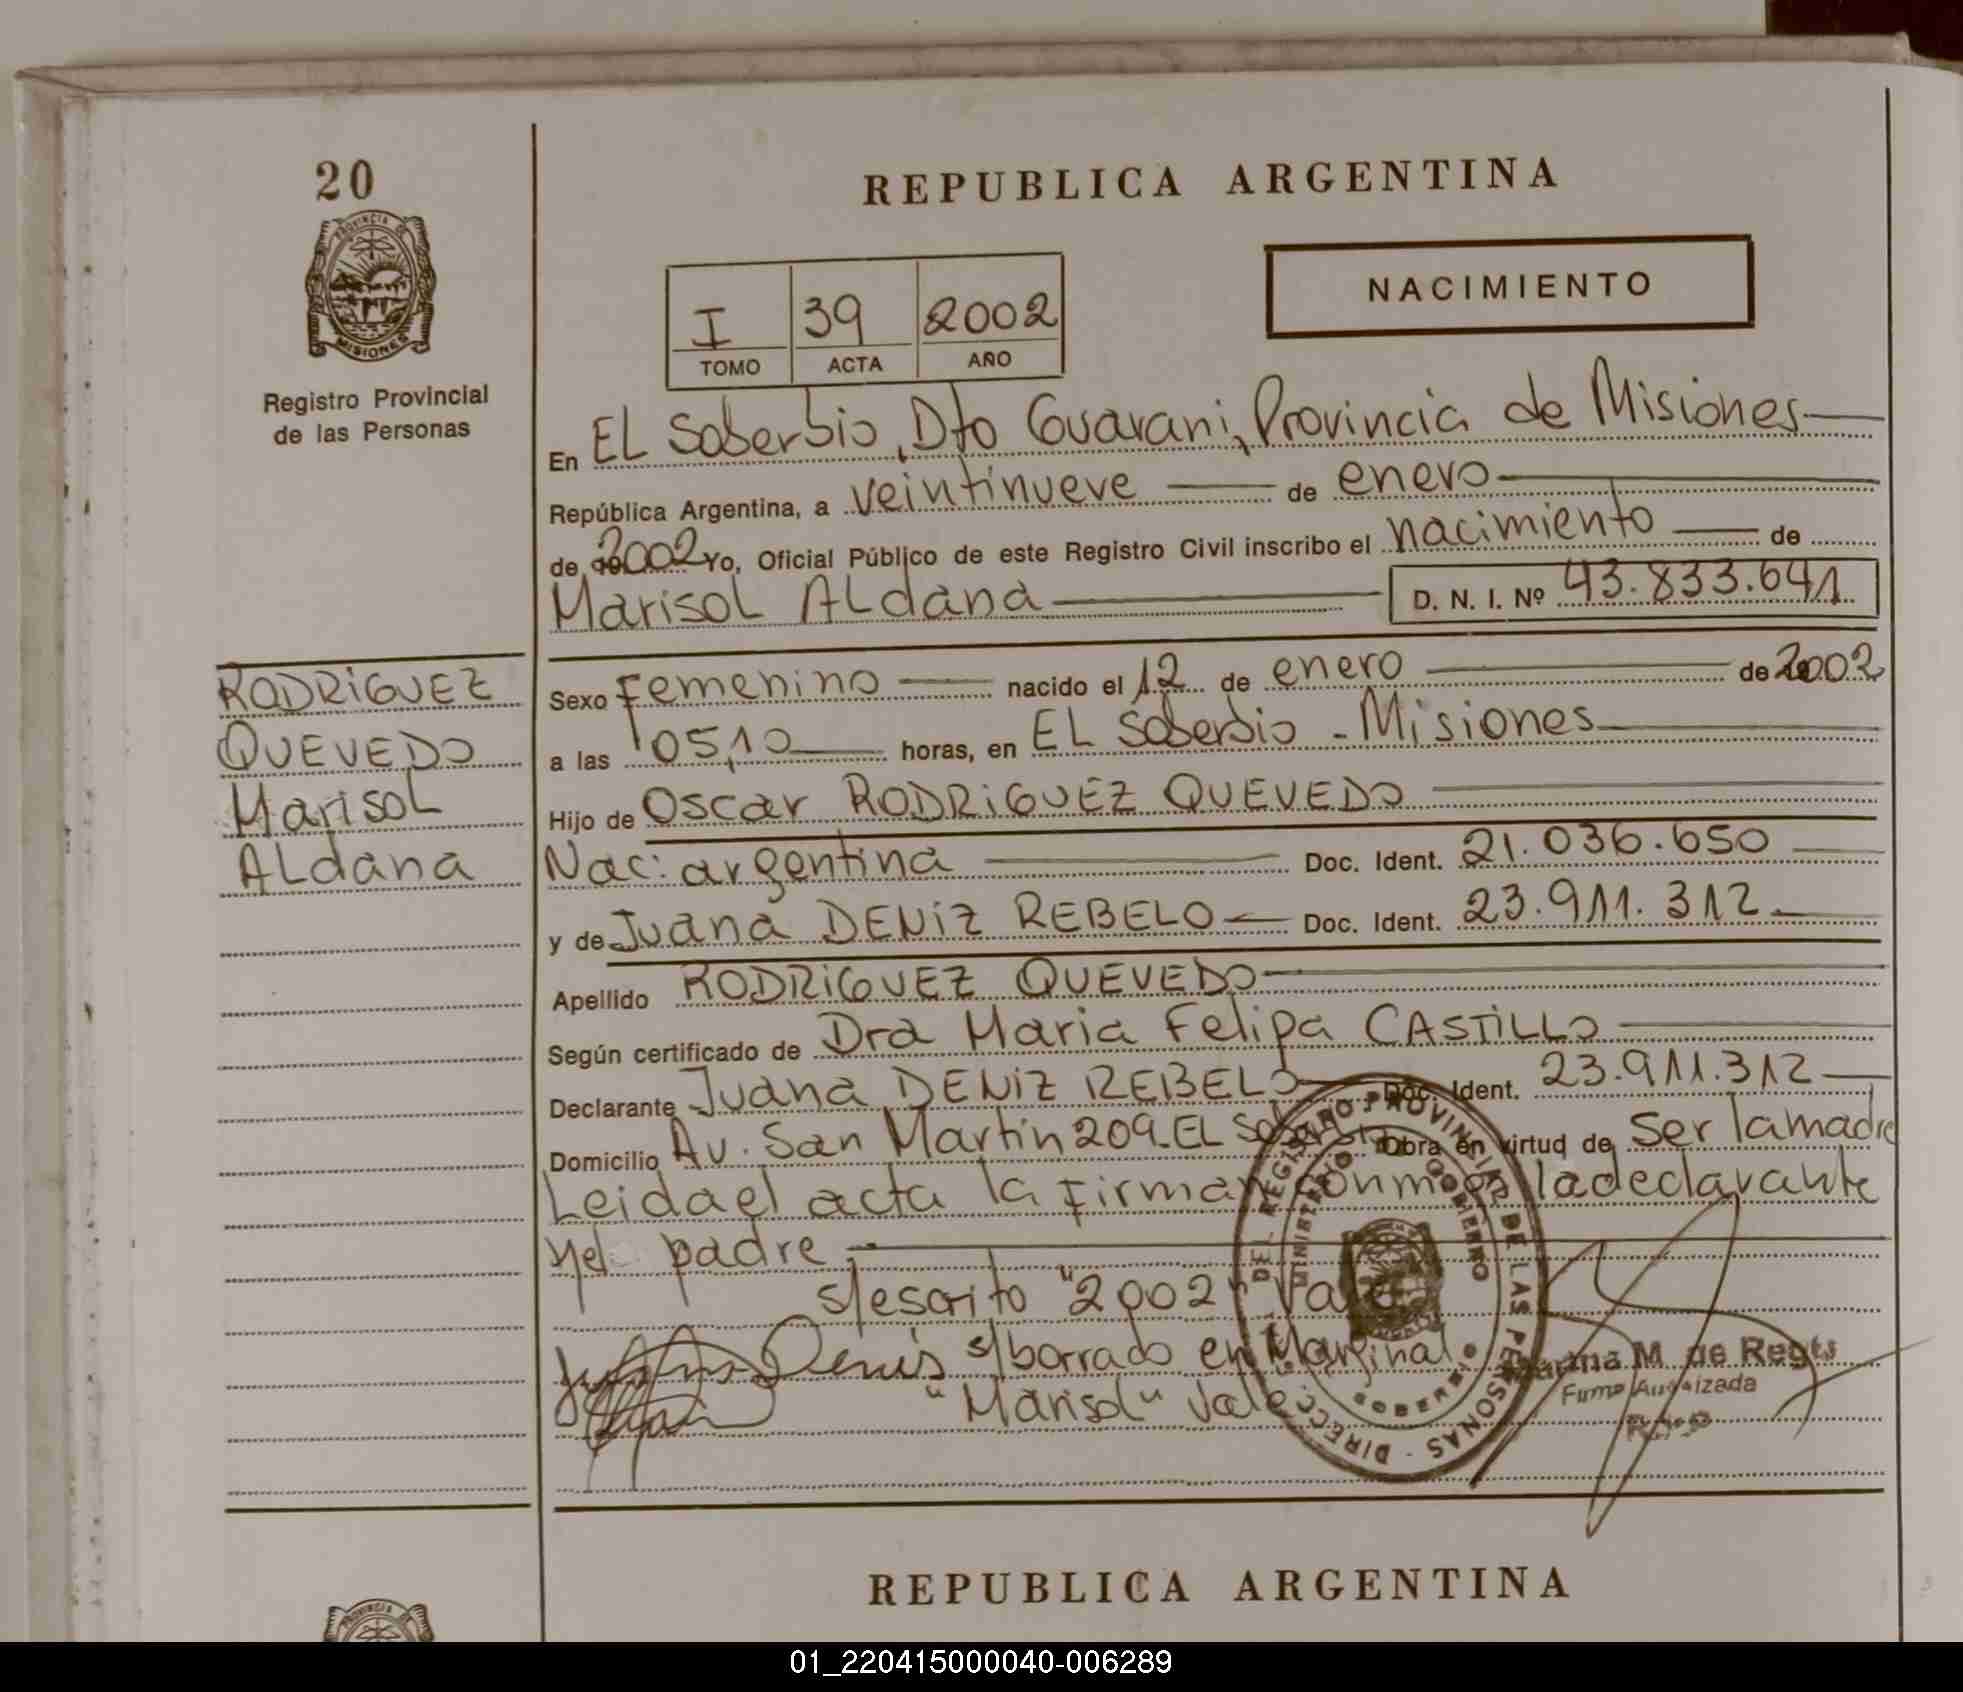 20
PROVINCIA DE
MISIONES
Registro Provincial
de las Personas
REPUBLICA ARGENTINA
I 39 2002
TOMO ACTA AÑO
NACIMIENTO
En EL Soberbio, Dto Guarani, Provincia de Misiones
República Argentina, a veintinueve de enero
de 2002 Yo, Oficial Público de este Registro Civil inscribo el nacimiento de
Marisol ALdana D. N. I. Nº 43.833.641
RODRiGUEZ
QUEVEDO
MarisoL
ALdana
Sexo Femenino nacido el 12 de enero de 2002
a las 05,10 horas, en EL Soberbio - Misiones
Hijo de Oscar RODRiGUEZ QUEVEDO
Nac: argentina Doc. Ident. 21.036.650
y de Juana DENiZ REBELO Doc. Ident. 23.911.312
Apellido RODRiGUEZ QUEVEDO
Según certificado de Dra Maria Felipa CASTiLLO
Declarante Juana DENiZ REBELO Doc. Ident. 23.911.312
Domicilio Av. San Martin 209-EL Soberbio Obra en virtud de Ser la madre
Leida el acta la firman conmigo la declarante
y el padre
s/escrito "2002" Vale
s/borrado en Marginal
"Marisol" vale
DIRECCION DEL REGISTRO PROVINCIAL DE LAS PERSONAS
MINISTERIO GOBIERNO
M. de Regts
Firma Autorizada
REPUBLICA ARGENTINA
PROVINCIA
01_220415000040-006289